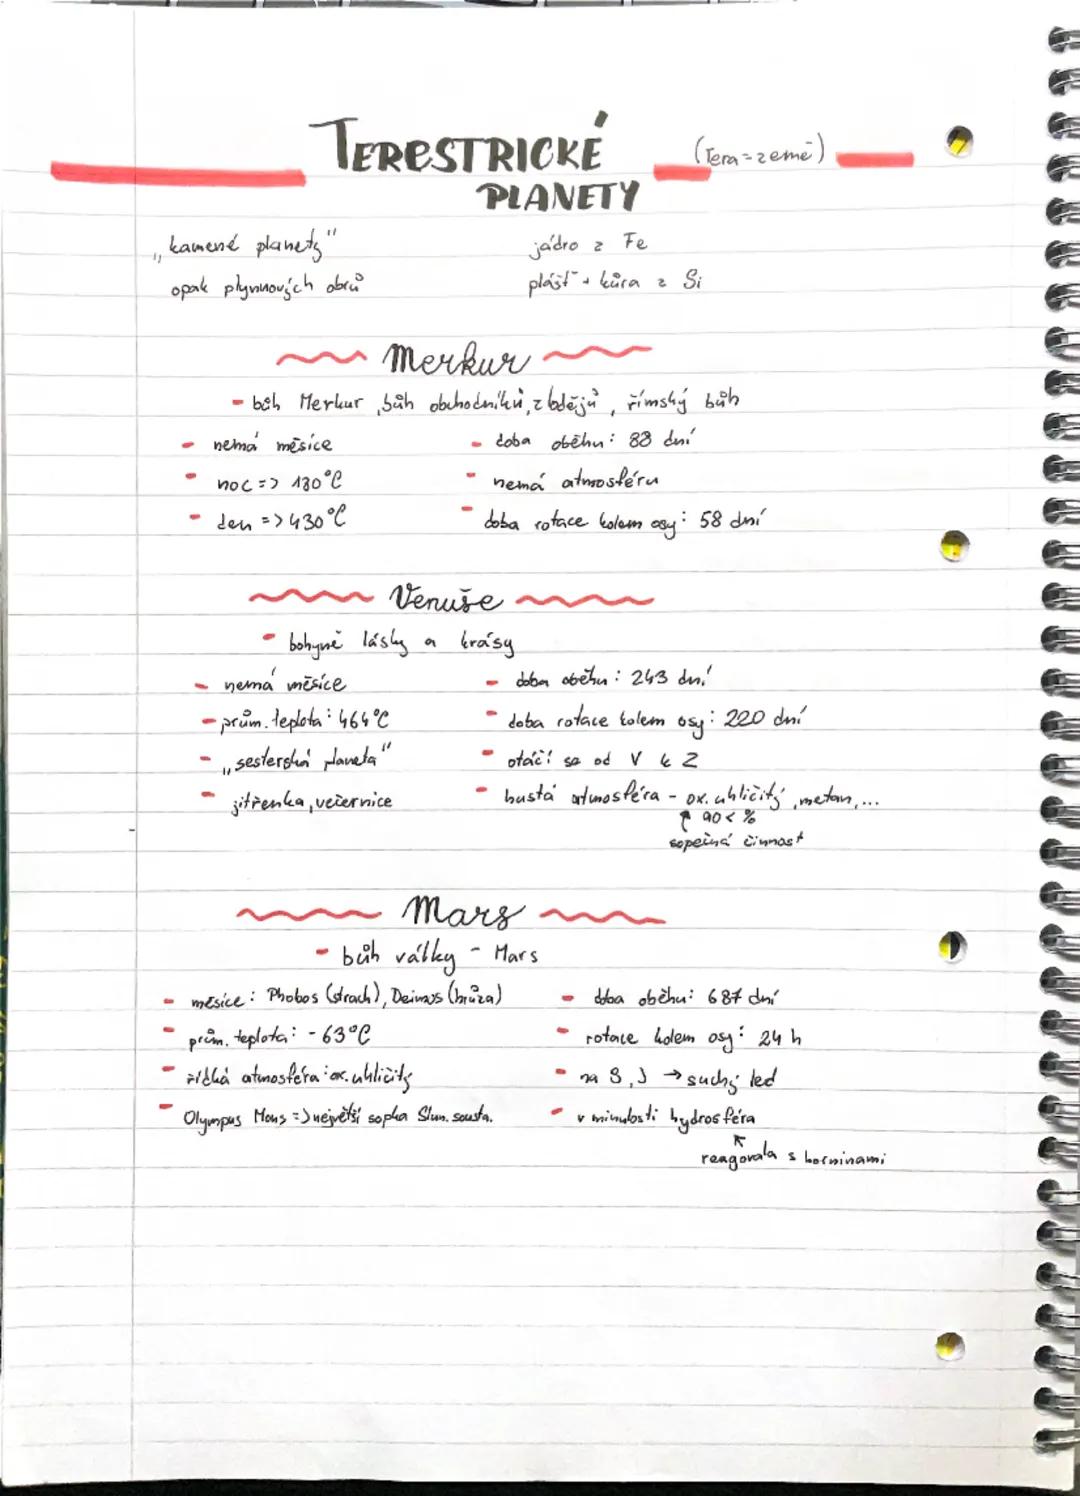 TERESTRICKÉ PLANETY (Tera = země)
„kamené planety"
opak plynnových obrů
jádro z Fe
plášť + kůra z Si
Merkur
- bůh Merkur, bůh obchodníků, zlodějů, římský bůh
- nemá měsíce
- noc => 180°C
- den => 430°C
- doba oběhu: 88 dní
- nemá atmosféru
- doba rotace kolem osy: 58 dní
Venuše
- bohyně lásky a krásy
- nemá měsíce
- prům. teplota: 464°C
- „sesterská planeta"
- jitřenka, večernice
- doba oběhu: 243 dní
- doba rotace kolem osy: 220 dní
- otáčí se od V k Z
- hustá atmosféra - ox. uhličitý, metan,...
↑ 90 < %
sopečná činnost
Mars
- bůh války - Mars
- měsíce: Phobos (strach), Deimos (hrůza)
- prům. teplota: -63°C
- řídká atmosféra: ox. uhličitý
- Olympus Mons => největší sopka Slun. sousta.
- doba oběhu: 687 dní
- rotace kolem osy: 24 h
- na S, J → suchý led
- v minulosti hydrosféra
↑
reagovala s horninami